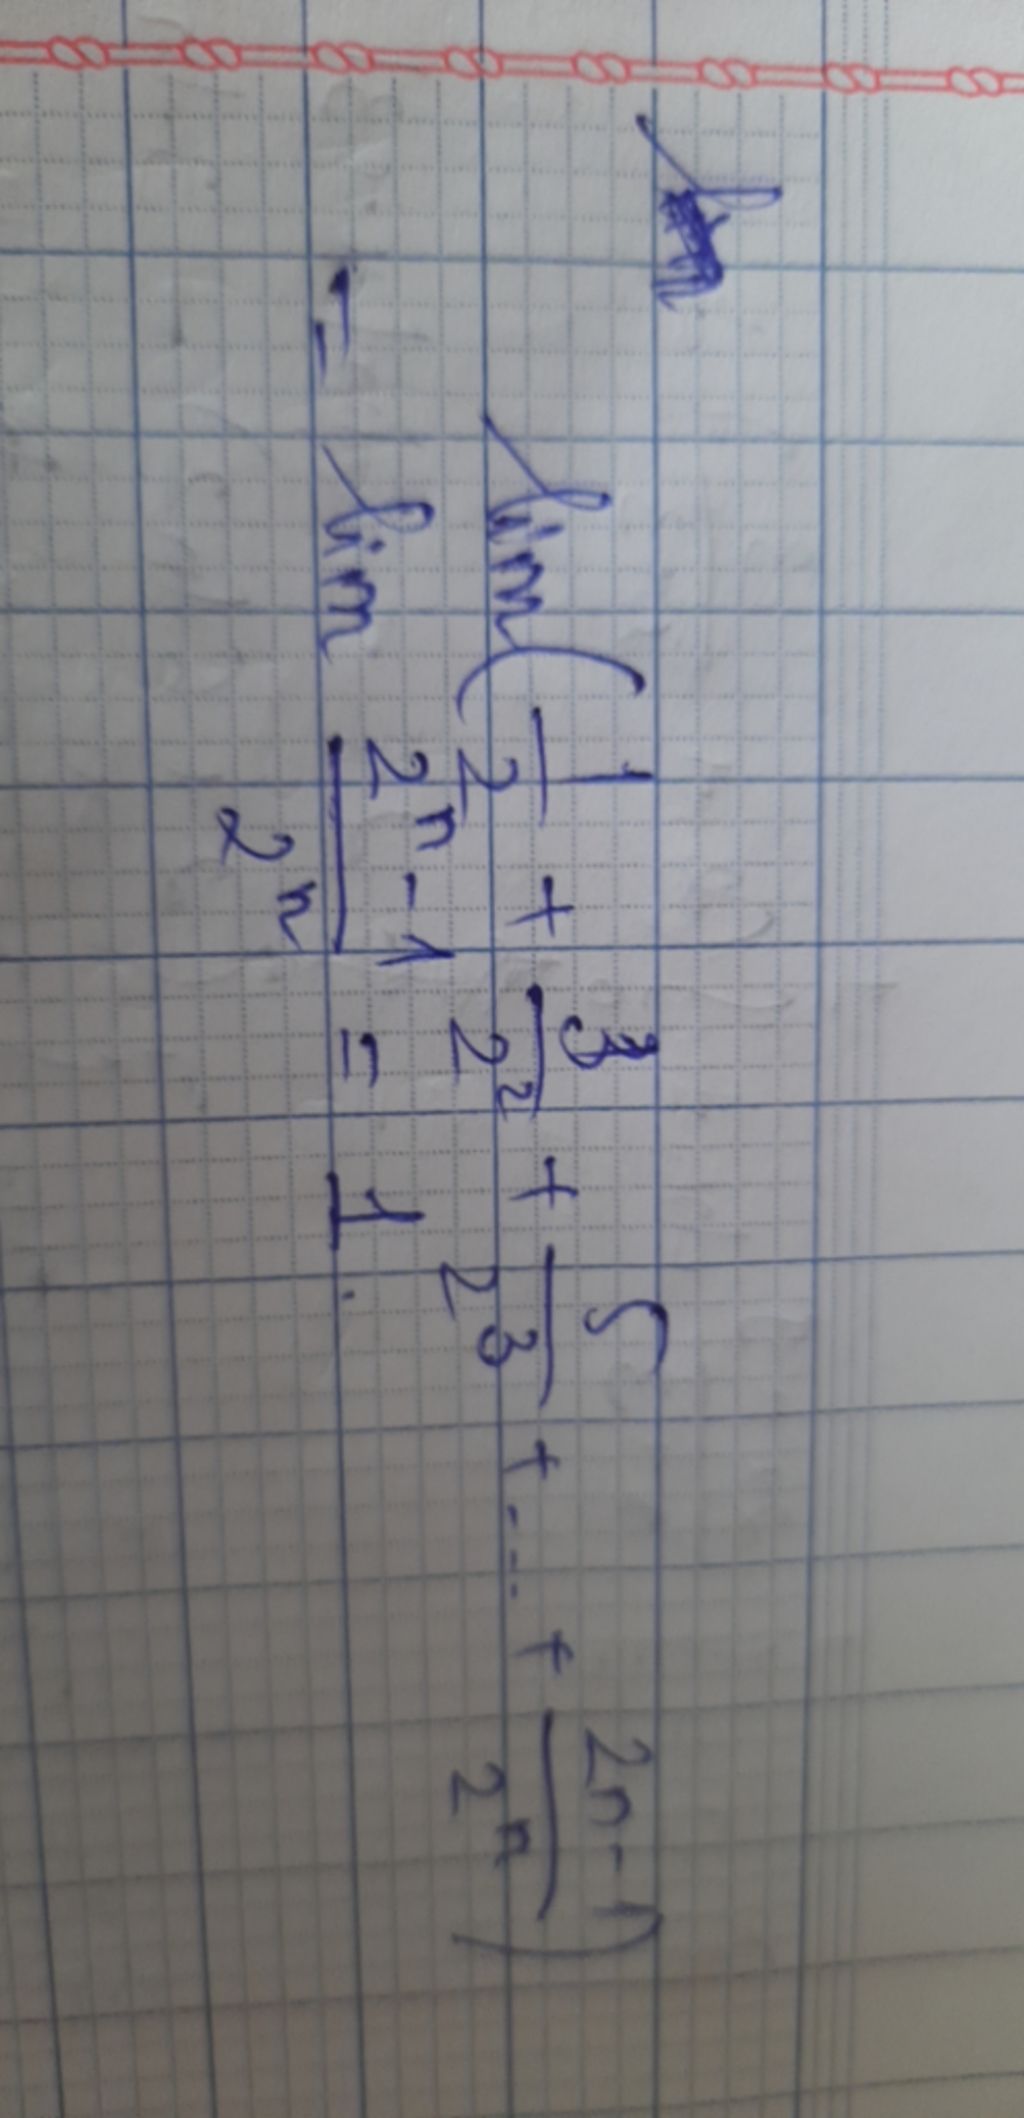 lim ( 1/2 + 3/2² + 5/2³ + ... + 2n-1/2ⁿ )
= lim 2ⁿ-1/2ⁿ = 1.